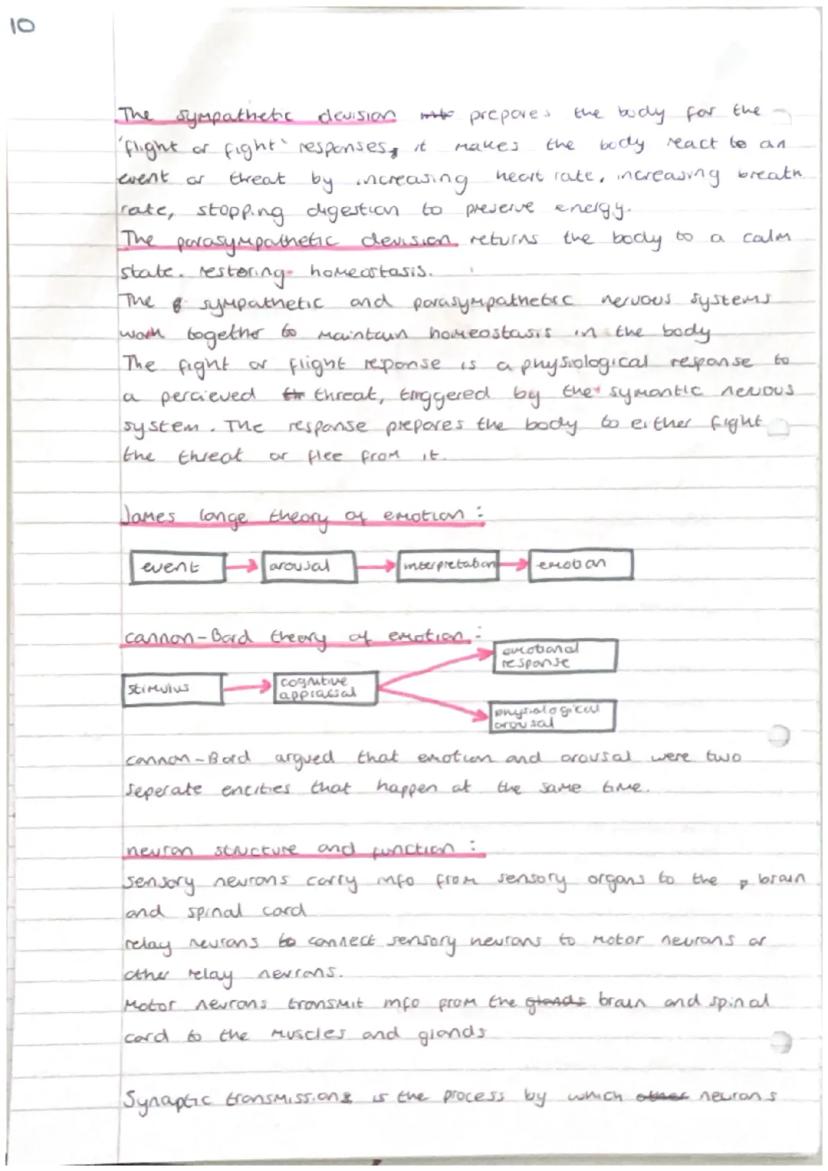 10
The sympathetic devision prepares the body for the
'flight or fight' responses, it makes the body react to an
event or threat by increasing heart rate, increasing breath
rate, stopping digestion to preserve energy.
The parasympathetic devision returns the body to a calm
state. restoring homeostasis.
The sympathetic and parasympathetic nervous systems
work together to maintain homeostasis in the body
The fight or flight reponse is a physiological response to
a percieved threat, triggered by the symantic nervous
system. The response prepares the body to either fight
the threat or flee from it.
James lange theory of emotion:
event → arousal → interpretation → emotion
cannon-Bard theory of emotion:
emotional
response
stimulus → cognitive
appraisal
physiological
arousal
cannon-Bard argued that emotion and arousal were two
seperate entities that happen at the same time.
neuron structure and function:
sensory neurons carry info from sensory organs to the brain
and spinal cord
relay neurons to connect sensory neurons to motor neurons or
other relay neurons.
Motor neurons transmit info from the glands brain and spinal
cord to the muscles and glands
Synaptic transmissions is the process by which other neurons